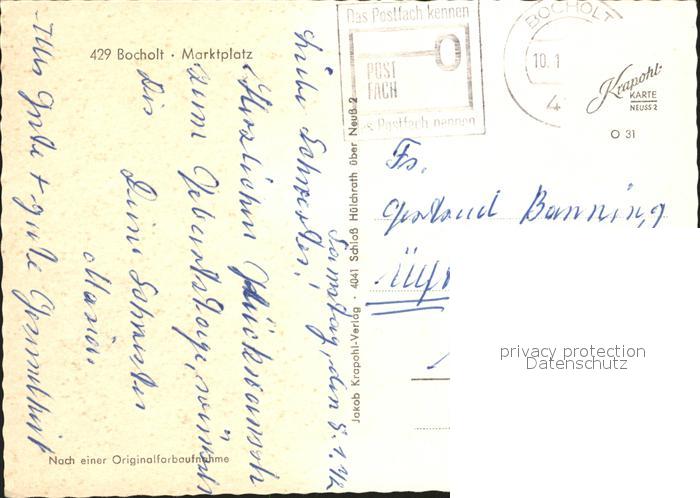 429 Bocholt · Marktplatz
Das Postfach kennen
POST
FACH
Das Postfach nennen
BOCHOLT
10. 1
4
Krapohl-
KARTE
NEUSS 2
O 31
Samstag, den 8. 1. 72
Liebe Schwester!
Herzlichen Glückwunsch
zum Geburtstage, wünscht
Dir
Deine Schwester
Maria
Alles Gute + gute Gesundheit
Jakob Krapohl-Verlag · 4041 Schloß Hülchrath über Neuß 2
Fr.
Gertrud Banning
Nach einer Originalfarbaufnahme
privacy protection
Datenschutz